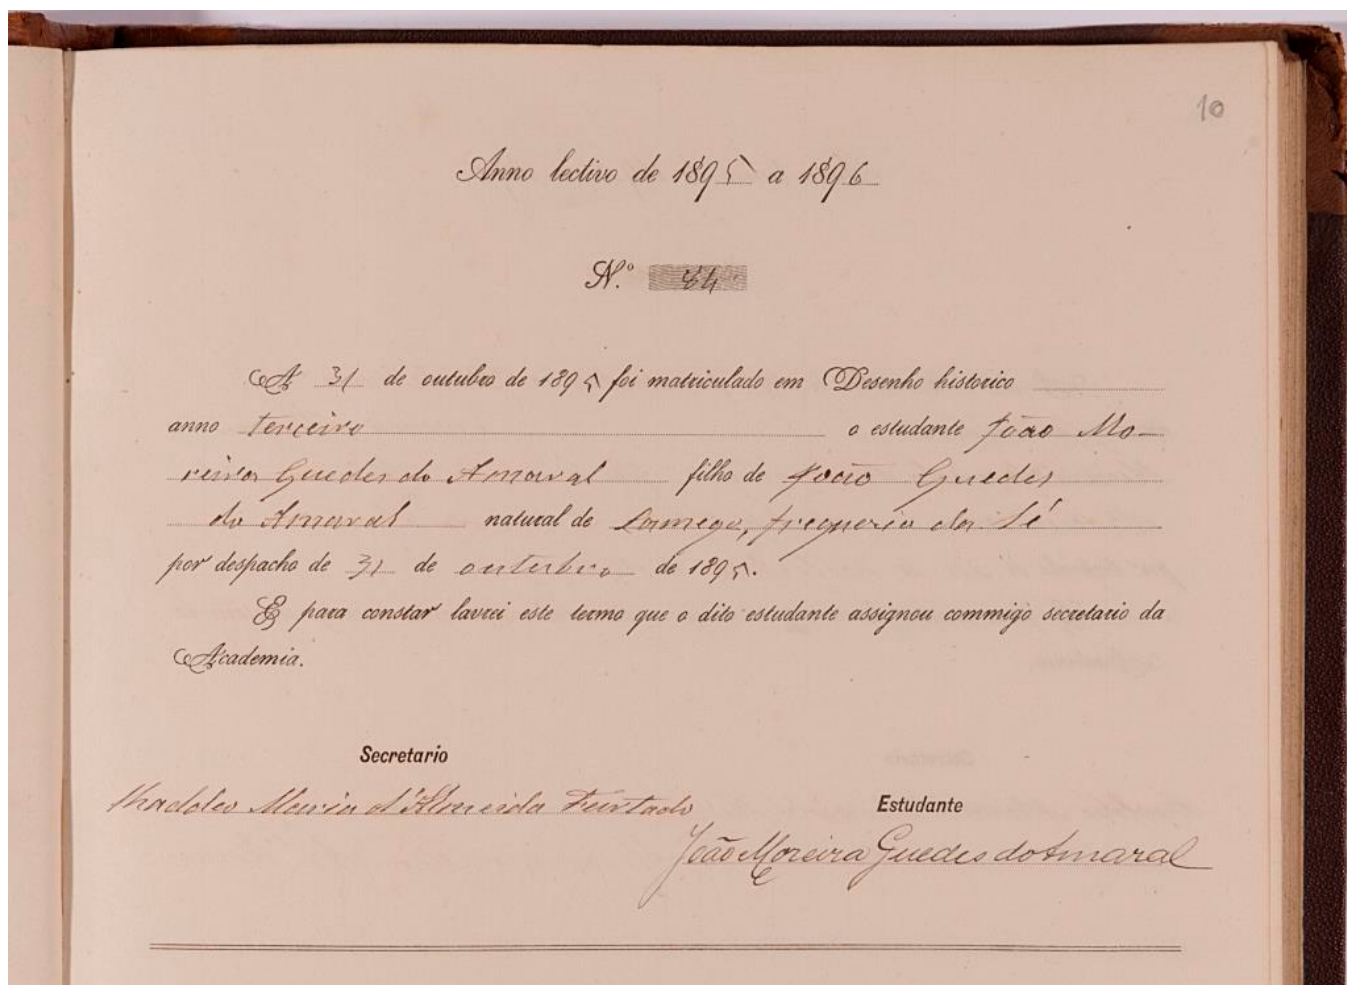 10
Anno lectivo de 1895 a 1896
N.º 84
A 31 de outubro de 1895 foi matriculado em Desenho historico
anno terceiro o estudante João Mo-
reira Guedes do Amaral filho de João Guedes
do Amaral natural de Lamego, freguesia da Sé
por despacho de 31 de outubro de 1895.
E para constar lavrei este termo que o dito estudante assignou commigo secretario da
Academia.
Secretario
Thaddeo Maria d'Almeida Furtado
Estudante
João Moreira Guedes do Amaral